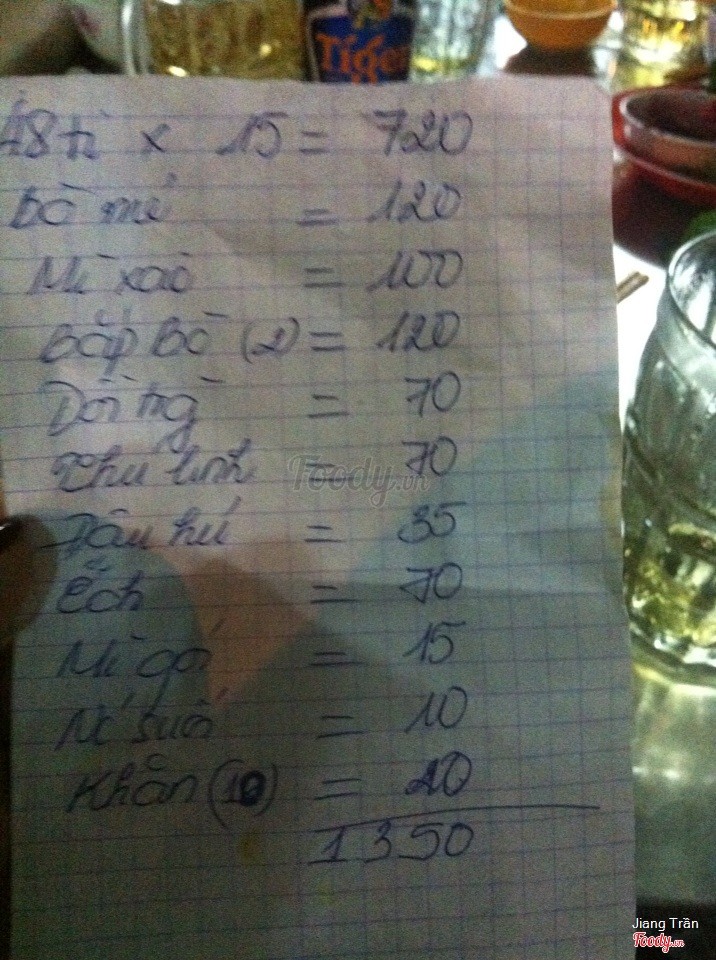 Tiger
48 ti x 15 = 720
Bò mé = 120
Mì xào = 100
Bắp Bò (2) = 120
Dồi trg = 70
linh = 70
Foody.vn
Dâu hú = 35
Ếch = 70
Mì gói = 15
N' suối = 10
Khăn (10) = 20
1350
Jiang Trần
Foody.vn